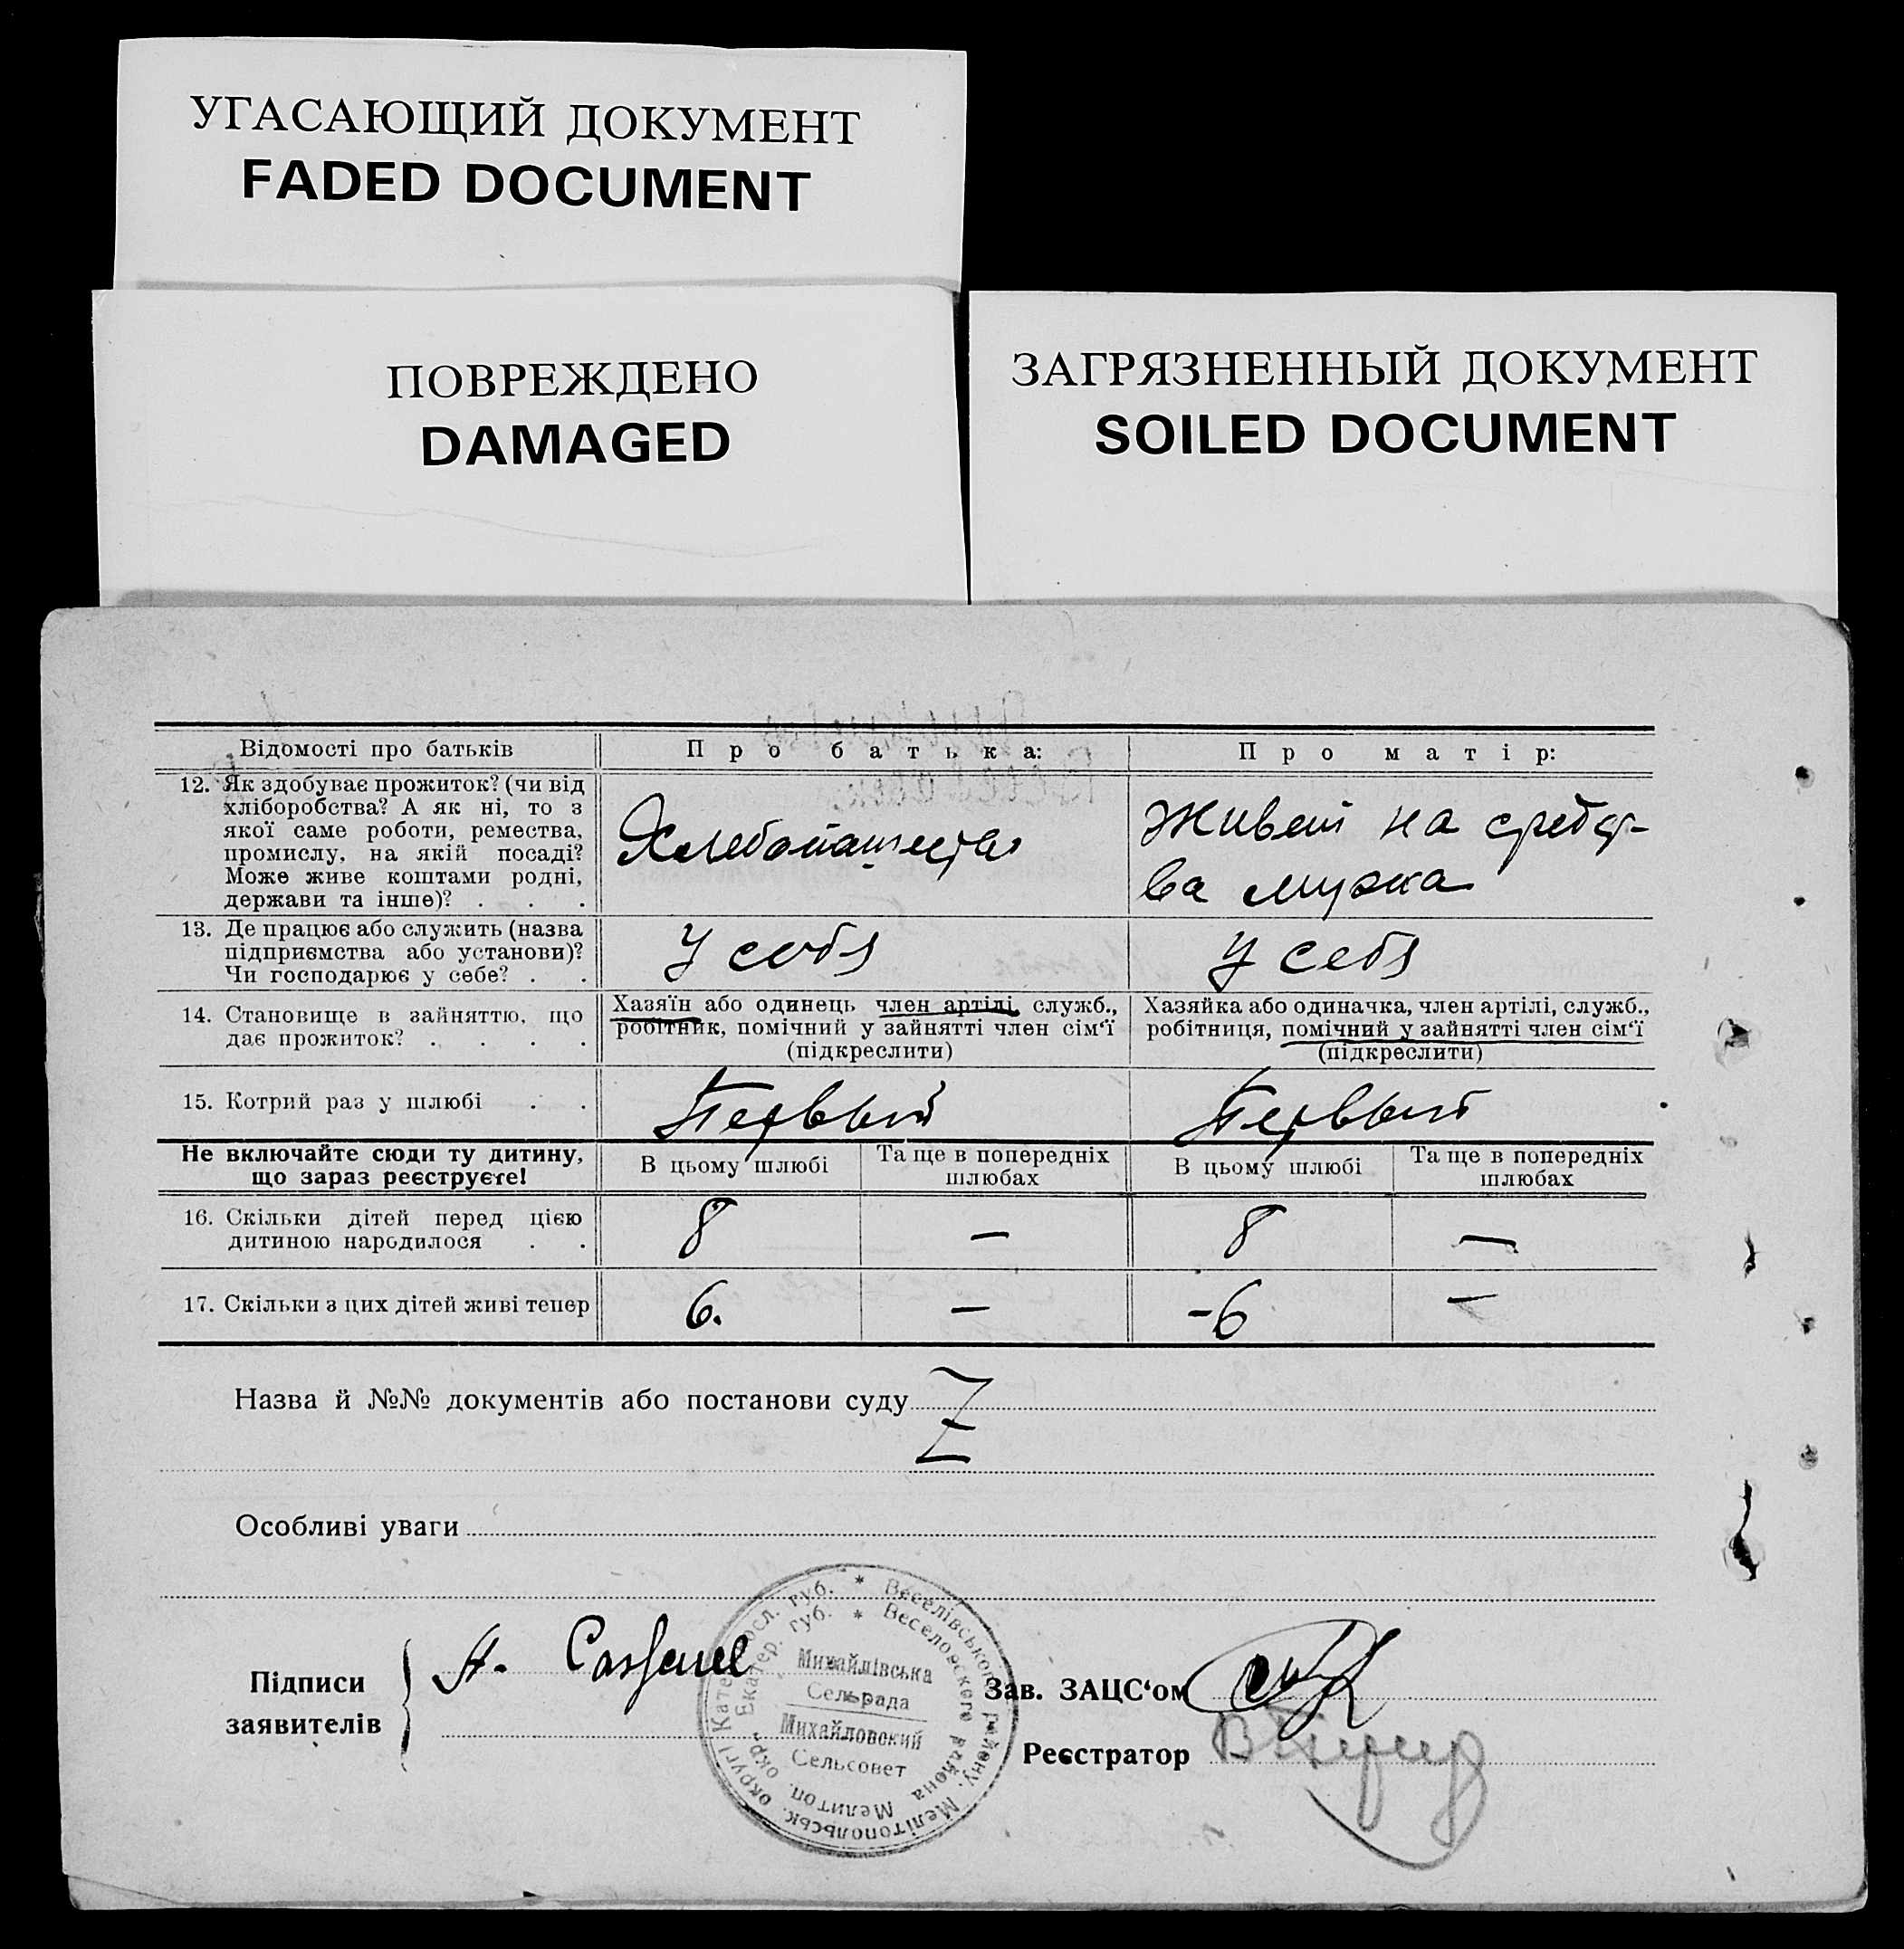 УГАСАЮЩИЙ ДОКУМЕНТ
FADED DOCUMENT
ПОВРЕЖДЕНО
DAMAGED
ЗАГРЯЗНЕННЫЙ ДОКУМЕНТ
SOILED DOCUMENT
Відомості про батьків
Про батька:
Про матір:
12. Як здобуває прожиток? (чи від
хліборобства? А як ні, то з
якої саме роботи, ремества,
промислу, на якій посаді?
Може живе коштами родні,
держави та інше)? . . .
Хлебопашество
Живет на средст-
ва мужа
13. Де працює або служить (назва
підприємства або установи)?
Чи господарює у себе? . .
У себя
У себя
14. Становище в зайняттю, що
дає прожиток? . . . .
Хазяїн або одинець член артілі, служб.,
робітник, помічний у зайнятті член сім‘ї
(підкреслити)
Хазяйка або одиначка, член артілі, служб.,
робітниця, помічний у зайнятті член сім‘ї
(підкреслити)
15. Котрий раз у шлюбі . .
Первый
Первый
Не включайте сюди ту дитину,
що зараз реєструєте!
В цьому шлюбі
Та ще в попередніх
шлюбах
В цьому шлюбі
Та ще в попередніх
шлюбах
16. Скільки дітей перед цією
дитиною народилося . .
8
—
8
—
17. Скільки з цих дітей живі тепер
6.
—
-6
—
Назва й №№ документів або постанови суду
Z
Особливі уваги
Підписи
заявителів
A.
Катериносл. губ. * Веселівського району, Мелітопольськ. округі
Екатер. губ. * Веселовского района Мелитоп. окр.
Михайлівська
Сельрада
Михайловский
Сельсовет
Зав. ЗАЦС‘ом
Реєстратор